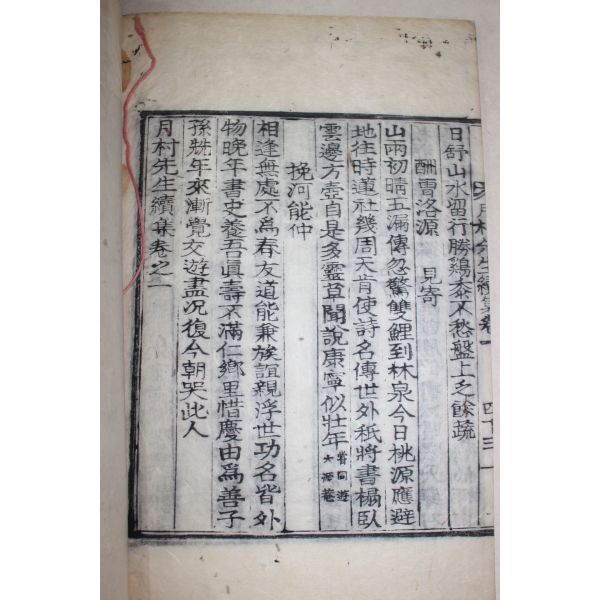 月村先生續集卷一
日舒山水留行勝鷄黍不愁盤上乏餘蔬
酬曺洛源 見寄
山雨初晴玉漏傳忽驚雙鯉到林泉今日桃源應避
地往時蓮社幾周天肯使詩名傳世外秪將書榻臥
雲邊方壺自是多靈草聞說康寧似壯年 嘗同遊大源菴
挽河能仲
相逢無處不爲春友道能兼族誼親浮世功名皆外
物晩年書史養吾眞壽不滿仁鄉里惜慶由爲善子
孫兟年來漸覺交遊盡况復今朝哭此人
月村先生續集卷之一